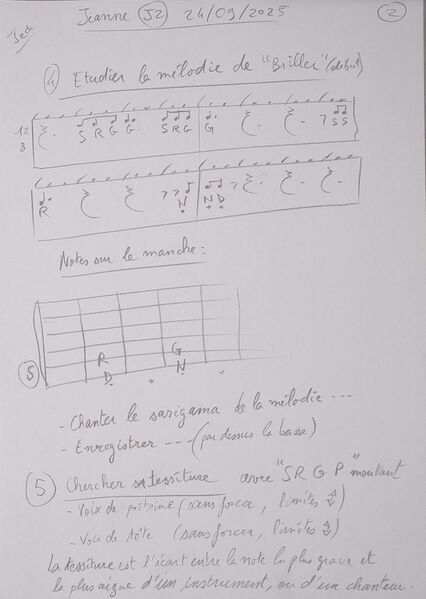 Jeanne J2 24/09/2025 2
4 Etudier la mélodie de "Briller" (début)
12
8
S R G G S R G G S S
R N N D
Notes sur le manche :
R G
S D N
- Chanter le sarigama de la mélodie ---
- Enregistrer --- (par dessus la basse)
5 Chercher sa tessiture avec "SR G P" montant
- Voix de poitrine (sans forcer, limites ⇕)
- Voix de tête (sans forcer, limites ⇕)
La tessiture est l'écart entre la note la plus grave et
la plus aigue d'un instrument, ou d'un chanteur.